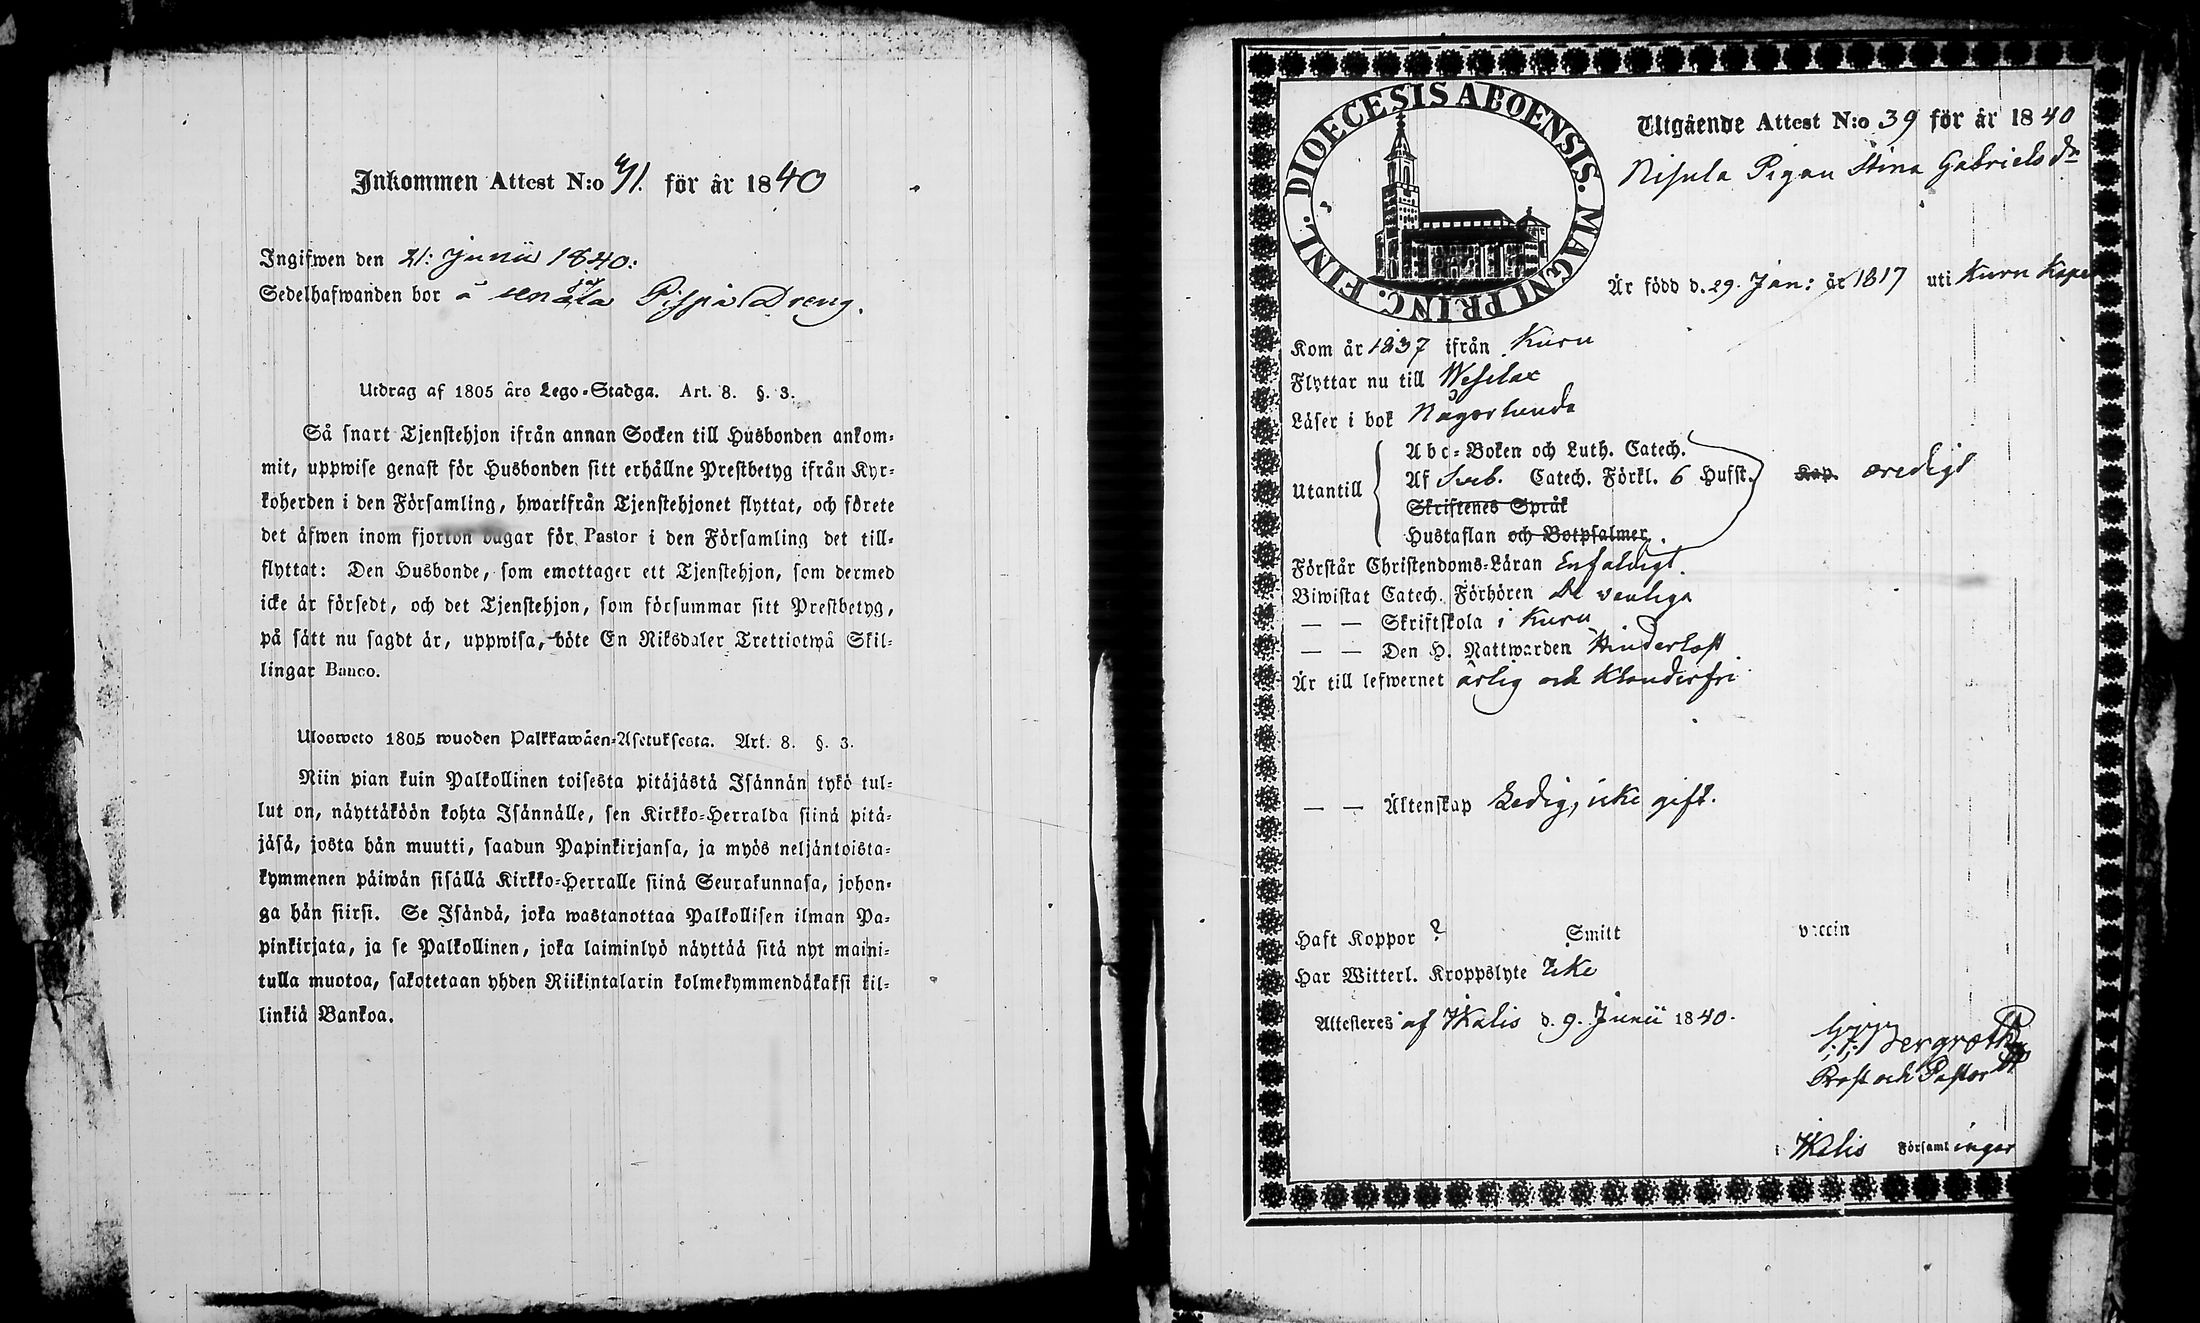 Inkommen Attest N:o 41. för år 1840
Ingifwen den 21: Junii 1840:
Sedelhafwanden bor å Pispa Dreng.
Utdrag af 1805 års Lego-Stadga. Art. 8. §. 3.
Så snart Tjenstehjon ifrån annan Socken till Husbonden ankom-
mit, uppwise genast för Husbonden sitt erhållne Prestbetyg ifrån Kyr-
koherden i den Församling, hwarifrån Tjenstehjonet flyttat, och förete
det äfwen inom fjorton dagar för Pastor i den Församling det till-
flyttat: Den Husbonde, som emottager ett Tjenstehjon, som dermed
icke är försedt, och det Tjenstehjon, som försummar sitt Prestbetyg,
på sätt nu sagdt är, uppwisa, böte En Riksdaler Trettiotwå Skil-
lingar Banco.
Ulosweto 1805 wuoden Palkkawäen-Asetuksesta. Art. 8. §. 3.
Niin pian kuin Palkollinen toisesta pitäjästä Isännän tykö tul-
lut on, näyttäköön kohta Isännälle, sen Kirkko-Herralda siinä pitä-
jäsä, josta hän muutti, saadun Papinkirjansa, ja myös neljäntoista-
kymmenen päiwän sisällä Kirkko-Herralle siinä Seurakunnasa, johon-
ga hän siirsi. Se Isändä, joka wastanottaa Palkollisen ilman Pa-
pinkirjata, ja se Palkollinen, joka laiminlyö näyttää sitä nyt maini-
tulla muotoa, sakotetaan yhden Riikintalarin kolmekymmendäkaksi kil-
linkiä Bankoa.
DIOECESIS ABOENSIS. MAGNI PRINC. FINL.
Utgående Attest N:o 39 för år 1840
Nisula Pigan Stina Gabrielsdr
Är född d. 29. Jan: år 1817 uti Kuru Kapel
Kom år 1837 ifrån Kuru
Flyttar nu till Wesilax
Läser i bok Någorlunda
Utantill
Abc-Boken och Luth. Catech.
Af Sveb. Catech. Förkl. 6 Hufst. Kap. oredigt
Skriftenes Språk
Hustaflan och Botpsalmer.
Förstår Christendoms-Läran Enfaldigt.
Biwistat Catech. Förhören De vanliga
— — Skriftskola i Kuru
— — Den H. Nattwarden Hinderlöst.
Är till lefwernet ärlig och Klanderfri
— — Äktenskap Ledig, icke gift.
Haft Koppor ? Smitt vaccin
Har Witterl. Kroppslyte Icke
Attesteres af Ikalis d. 9. Junii 1840.
Bergroth
Prost och Pastor
i Ikalis Församlingar